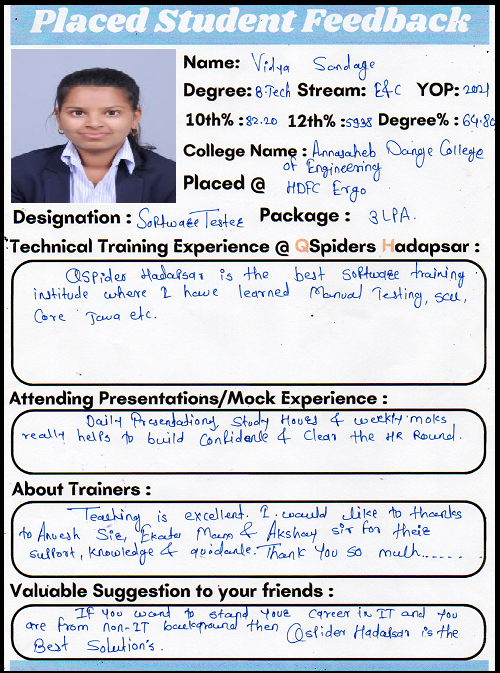 Placed Student Feedback
Name: Vidya Sandage
Degree: B.Tech Stream: E&C YOP: 2021
10th% : 82.20 12th% : 59.38 Degree% : 64.80
College Name : Annasaheb Dange College
of Engineering
Placed @ HDFC Ergo
Designation : Software Tester Package : 3 LPA.
Technical Training Experience @ QSpiders Hadapsar :
QSpider Hadapsar is the best software training
institude where I have learned Manual Testing, SQL,
Core Java etc.
Attending Presentations/Mock Experience :
Daily Presentations, Study Hours & weekly moks
really helps to build Confidance & Clear the HR Round.
About Trainers :
Teaching is excellent. I would like to thanks
to Anvesh Sir, Ekata Mam & Akshay sir for their
support, knowledge & guidance. Thank You so much......
Valuable Suggestion to your friends :
If You want to stand your career in IT and you
are from non-IT background then Qspider Hadapsar is the
Best Solution's.